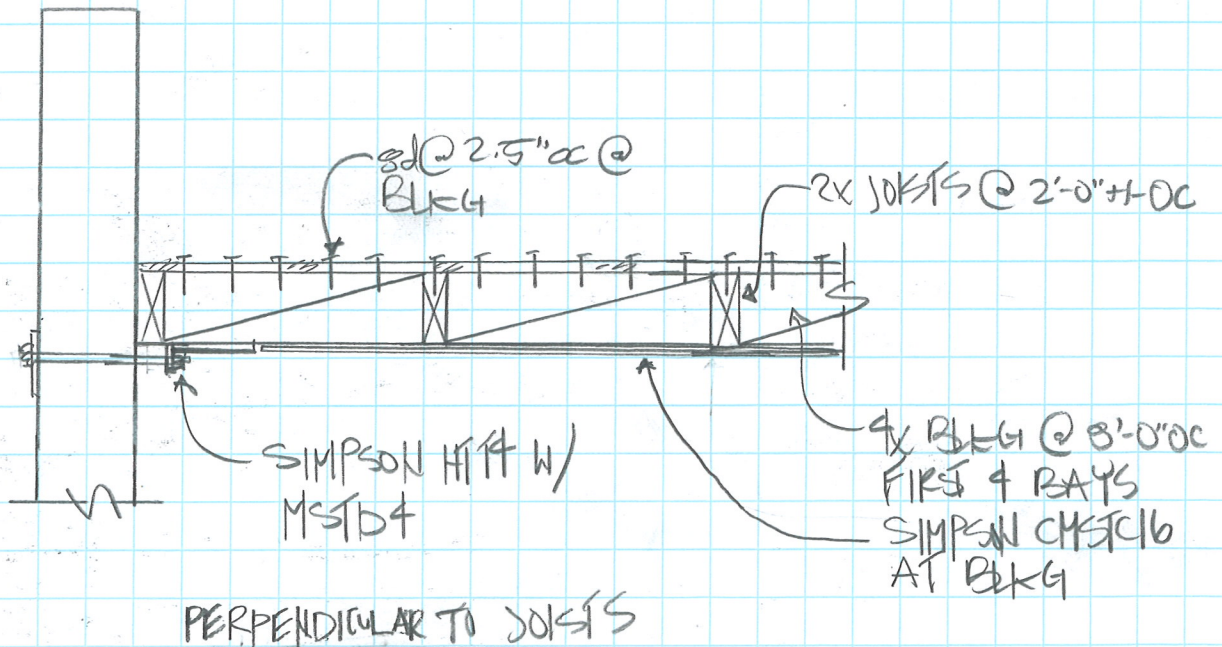 8d@ 2.5"oc @
BLKG
2X JOISTS @ 2'-0"+/-OC
SIMPSON HTT4 W/
MSTD4
4X BLKG @ 8'-0"OC
FIRST 4 BAYS
SIMPSON CMSTC16
AT BLKG
PERPENDICULAR TO JOISTS